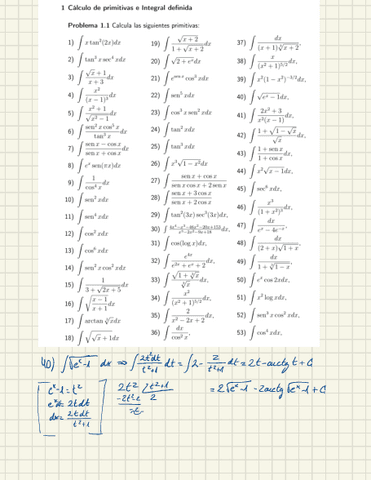 1 Cálculo de primitivas e Integral definida
Problema 1.1 Calcula las siguientes primitivas:
1) ∫ x tan²(2x)dx
2) ∫ tan³ x sec⁴ xdx
3) ∫ (√x + 1)/(x + 3) dx
4) ∫ x²/(x − 1)³ dx
5) ∫ (x² + 1)/√(x² − 1) dx
6) ∫ (sen² x cos⁵ x)/(tan³ x) dx
7) ∫ (sen x − cos x)/(sen x + cos x) dx
8) ∫ eˣ sen(πx)dx
9) ∫ 1/cos⁴ x dx
10) ∫ sen² xdx
11) ∫ sen⁴ xdx
12) ∫ cos² xdx
13) ∫ cos⁶ xdx
14) ∫ sen² x cos² xdx
15) ∫ 1/(3 + √(2x + 5)) dx
16) ∫ √((x − 1)/(x + 1)) dx
17) ∫ arctan ∛x dx
18) ∫ √(√x + 1)dx
19) ∫ √(x + 2)/(1 + √(x + 2)) dx
20) ∫ √(2 + eˣ)dx
21) ∫ e^(sen x) cos³ xdx
22) ∫ sen⁵ xdx
23) ∫ cos³ x sen² xdx
24) ∫ tan² xdx
25) ∫ tan³ xdx
26) ∫ x³√(1 − x²)dx
27) ∫ (sen x + cos x)/(sen x cos x + 2 sen x) dx
28) ∫ (sen x + 3 cos x)/(sen x + 2 cos x) dx
29) ∫ tan²(3x) sec³(3x)dx,
31) ∫ cos(log x)dx,
32) ∫ e⁴ˣ/(e²ˣ + eˣ + 2) dx
34) ∫ x²/(x² + 1)^(5/2) dx,
35) ∫ 2/(x² − 2x + 2) dx
36) ∫ dx/cos³ x,
38) ∫ x/(x² + 1)^(5/2) dx,
39) ∫ x²(1 − x²)^(−3/2)dx,
40) ∫ √(eˣ − 1)dx,
41) ∫ (2x² + 3)/(x²(x − 1)) dx,
42) ∫ (1 + √(1 − √x))/√x dx,
43) ∫ (1 + sen x)/(1 + cos x) dx,
44) ∫ x²√(x − 1)dx,
45) ∫ sec⁶ xdx,
46) ∫ x³/(1 + x²)³ dx
47) ∫ dx/(eˣ − 4e⁻ˣ),
48) ∫ dx/((2 + x)√(1 + x)),
49) ∫ dx/(1 + ∛(1 − x)),
50) ∫ eˣ cos 2xdx,
51) ∫ x² log xdx,
52) ∫ sen³ x cos² xdx,
53) ∫ cos⁴ xdx,
40) ∫ √(eˣ-1) dx ⇒ ∫ 2t²dt/(t²+1) dt = ∫ 2 - 2/(t²+1) dt = 2t - arctg t + C
eˣ-1 = t²
eˣdx = 2tdt
dx = 2tdt/(t²+1)
2t² t²+1
-2t²-2 2
= 2√(eˣ-1) - 2arctg √(eˣ-1) + C